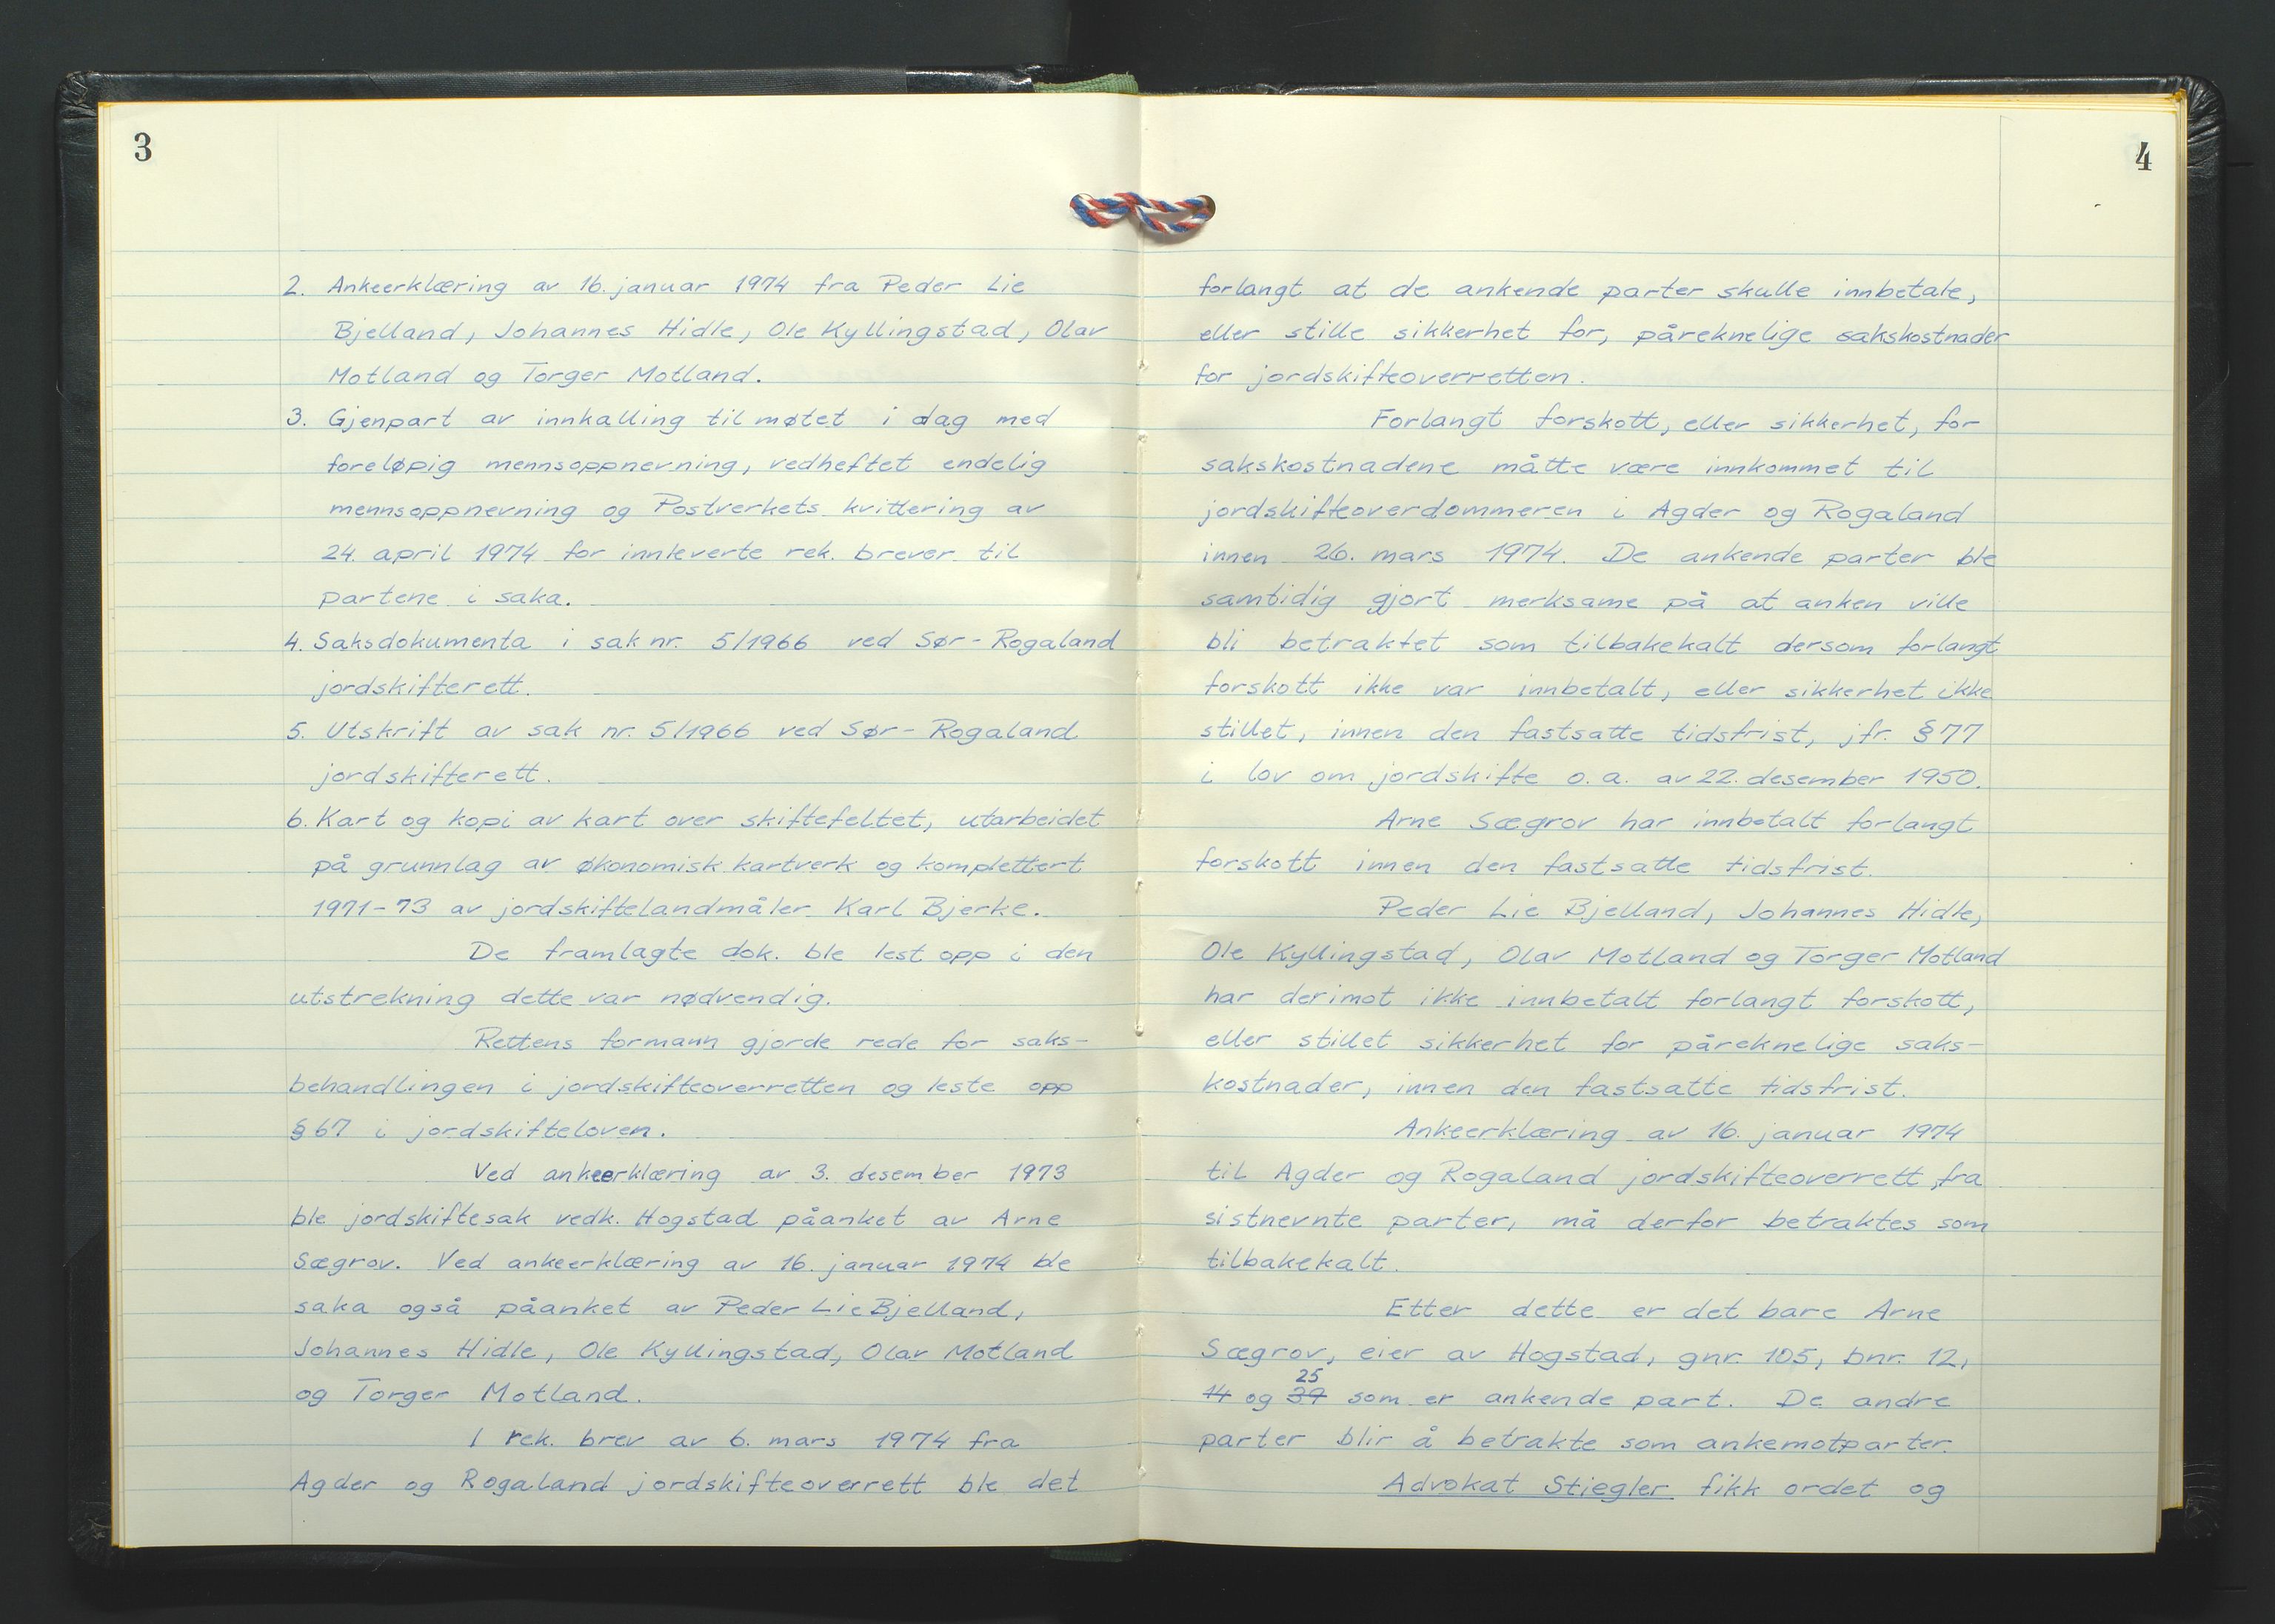 3
2. Ankeerklæring av 16. januar 1974 fra Peder Lie
Bjelland, Johannes Hidle, Ole Kyllingstad, Olav
Motland og Torger Motland.
3. Gjenpart av innkalling til møtet i dag med
foreløpig mennsoppnevning, vedheftet endelig
mennsoppnevning og Postverkets kvittering av
24. april 1974 for innleverte rek. brever til
partene i saka.
4. Saksdokumenta i sak nr. 5/1966 ved Sør-Rogaland
jordskifterett.
5. Utskrift av sak nr. 5/1966 ved Sør-Rogaland
jordskifterett.
6. Kart og kopi av kart over skiftefeltet, utarbeidet
på grunnlag av økonomisk kartverk og komplettert
1971-73 av jordskiftelandmåler Karl Bjerke.
De framlagte dok. ble lest opp i den
utstrekning dette var nødvendig.
Rettens formann gjorde rede for saks-
behandlingen i jordskifteoverretten og leste opp
§ 67 i jordskifteloven.
Ved ankeerklæring av 3. desember 1973
ble jordskiftesak vedk. Hogstad påanket av Arne
Sægrov. Ved ankeerklæring av 16. januar 1974 ble
saka også påanket av Peder Lie Bjelland,
Johannes Hidle, Ole Kyllingstad, Olav Motland
og Torger Motland.
I rek. brev av 6. mars 1974 fra
Agder og Rogaland jordskifteoverrett ble det
4
forlangt at de ankende parter skulle innbetale,
eller stille sikkerhet for, påreknelige sakskostnader
for jordskifteoverretten.
Forlangt forskott, eller sikkerhet, for
sakskostnadene måtte være innkommet til
jordskifteoverdommeren i Agder og Rogaland
innen 26. mars 1974. De ankende parter ble
samtidig gjort merksame på at anken ville
bli betraktet som tilbakekalt dersom forlangt
forskott ikke var innbetalt, eller sikkerhet ikke
stillet, innen den fastsatte tidsfrist, jfr. § 77
i lov om jordskifte o.a. av 22. desember 1950.
Arne Sægrov har innbetalt forlangt
forskott innen den fastsatte tidsfrist.
Peder Lie Bjelland, Johannes Hidle,
Ole Kyllingstad, Olav Motland og Torger Motland
har derimot ikke innbetalt forlangt forskott,
eller stillet sikkerhet for påreknelige saks-
kostnader, innen den fastsatte tidsfrist.
Ankeerklæring av 16. januar 1974
til Agder og Rogaland jordskifteoverrett, fra
sistnevnte parter, må derfor betraktes som
tilbakekalt.
Etter dette er det bare Arne
Sægrov, eier av Hogstad, gnr. 105, bnr. 12,
25
14 og 39 som er ankende part. De andre
parter blir å betrakte som ankemotparter.
Advokat Stiegler fikk ordet og